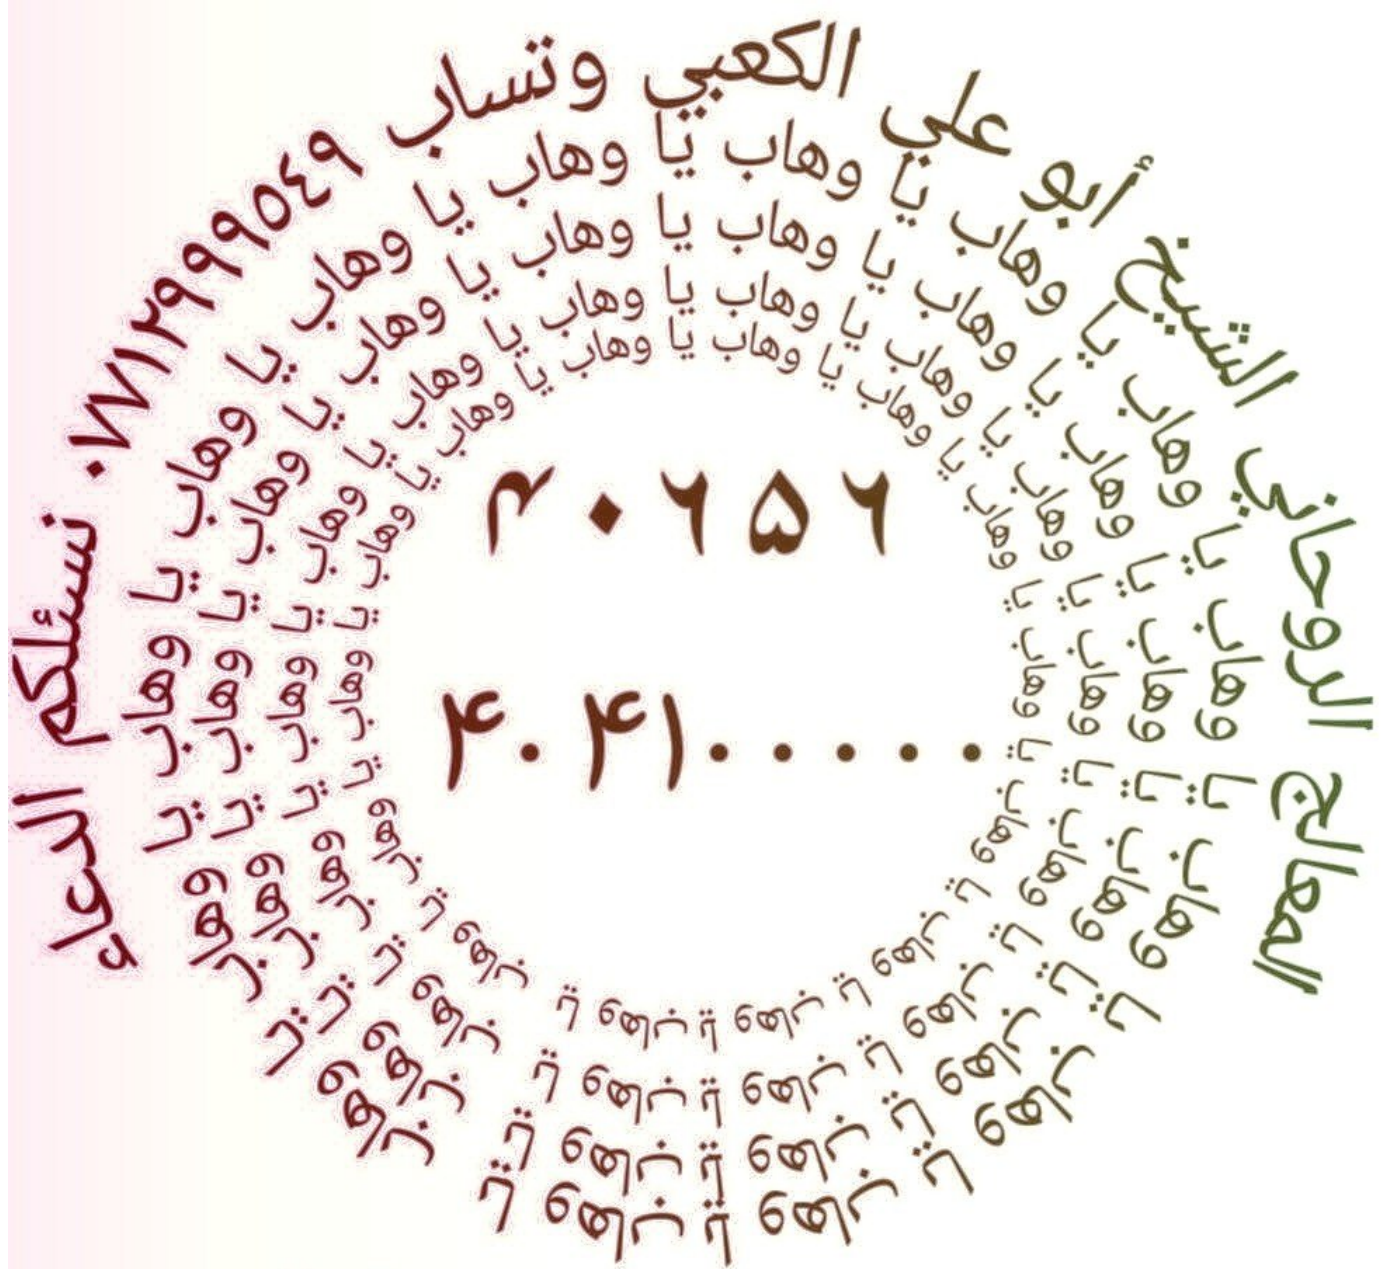 المعالج الروحاني الشيخ أبو علي الكعبي وتساب ٠٧٧١٢٩٩٩٥٤٩ نسئلكم الدعاء
يا وهاب يا وهاب يا وهاب يا وهاب يا وهاب يا وهاب يا وهاب يا وهاب يا وهاب يا وهاب يا وهاب يا وهاب يا وهاب يا وهاب
يا وهاب يا وهاب يا وهاب يا وهاب يا وهاب يا وهاب يا وهاب يا وهاب يا وهاب يا وهاب يا وهاب يا وهاب يا وهاب يا وهاب
يا وهاب يا وهاب يا وهاب يا وهاب يا وهاب يا وهاب يا وهاب يا وهاب يا وهاب يا وهاب يا وهاب يا وهاب يا وهاب يا وهاب
يا وهاب يا وهاب يا وهاب يا وهاب يا وهاب يا وهاب يا وهاب يا وهاب يا وهاب يا وهاب يا وهاب يا وهاب يا وهاب يا وهاب
۳۰۶۵۶
۴۰۴۱۰۰۰۰۰